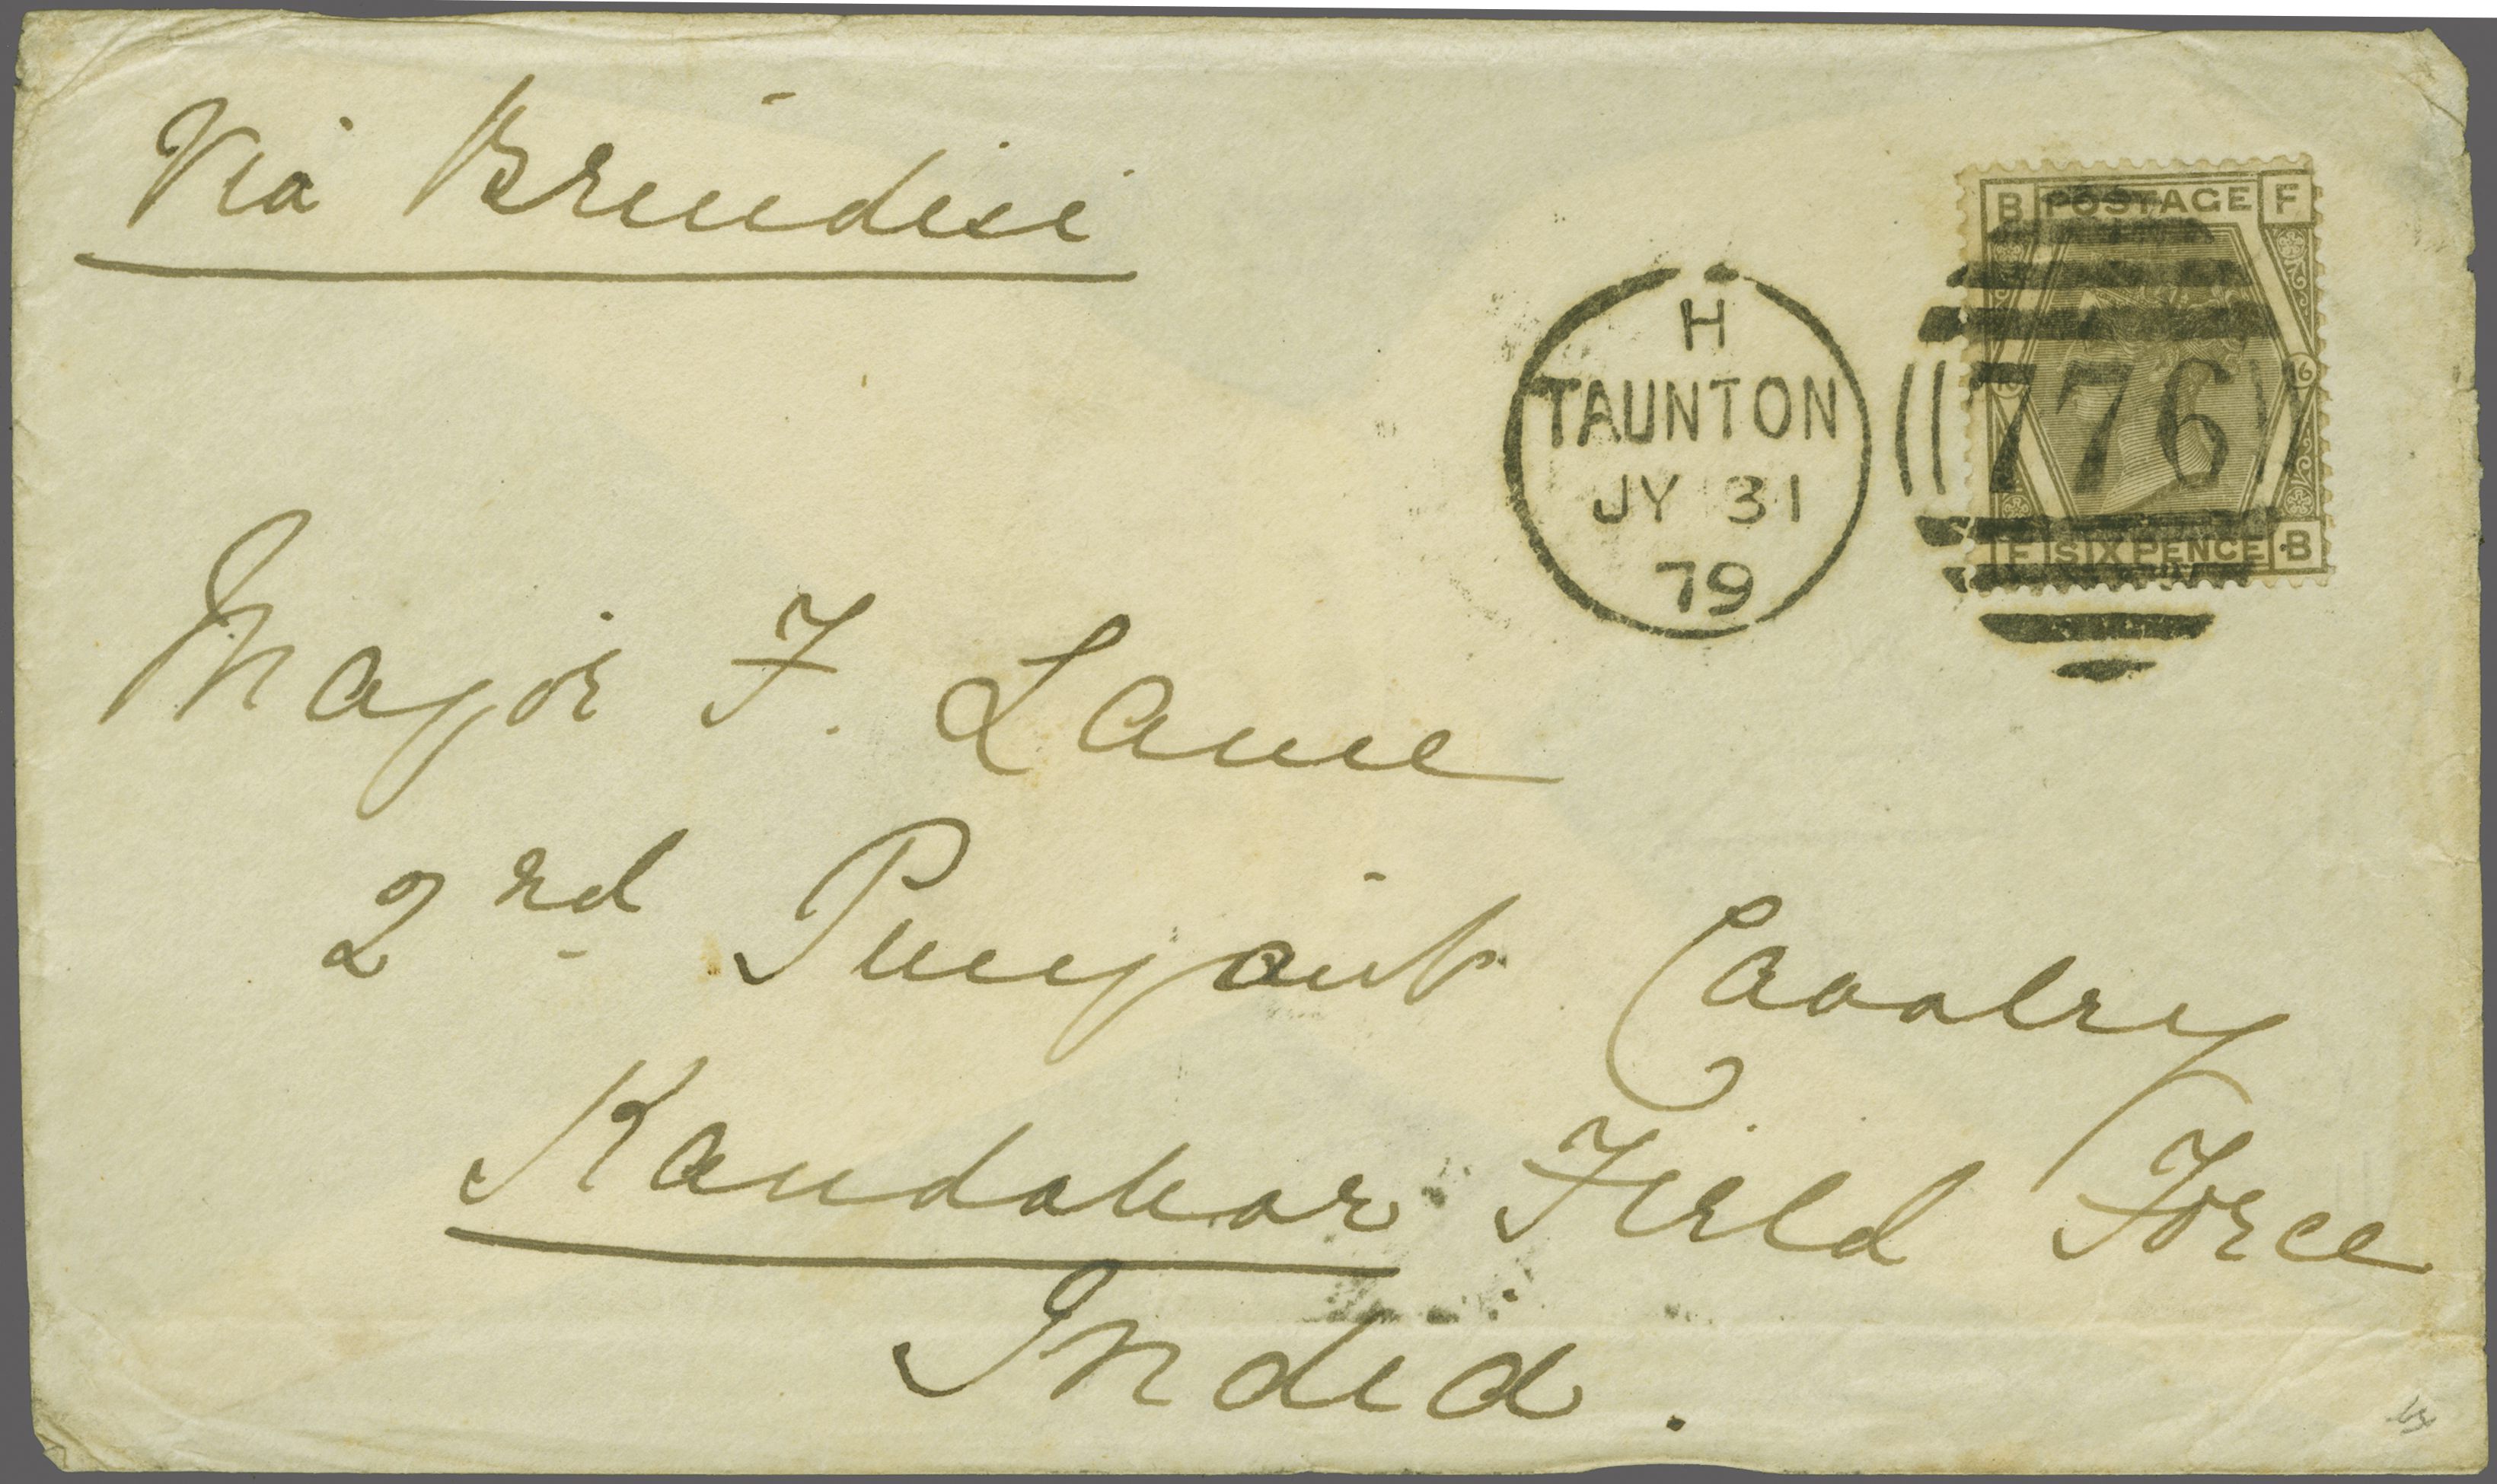 Via Brindisi
B POSTAGE F
H
TAUNTON
JY 31
79
776
16
F SIX PENCE B
Major F. Lane
2nd Punjaub Cavalry
Kandahar Field Force
India.